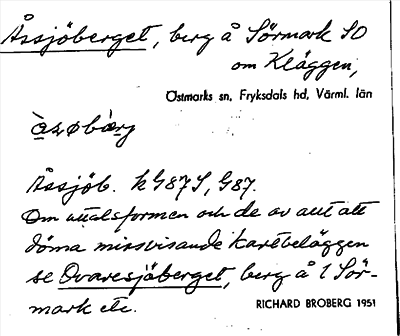 Åssjöberget, berg å Sörmark SO
om Kläggen,
Östmarks sn, Fryksdals hd, Värml. län
Åssjöb. kG87S, G87.
Om uttalsformen och de av allt att
döma missvisande kartbeläggen
se Ovaresjöberget, berg å 1 Sör-
mark etc.
RICHARD BROBERG 1951